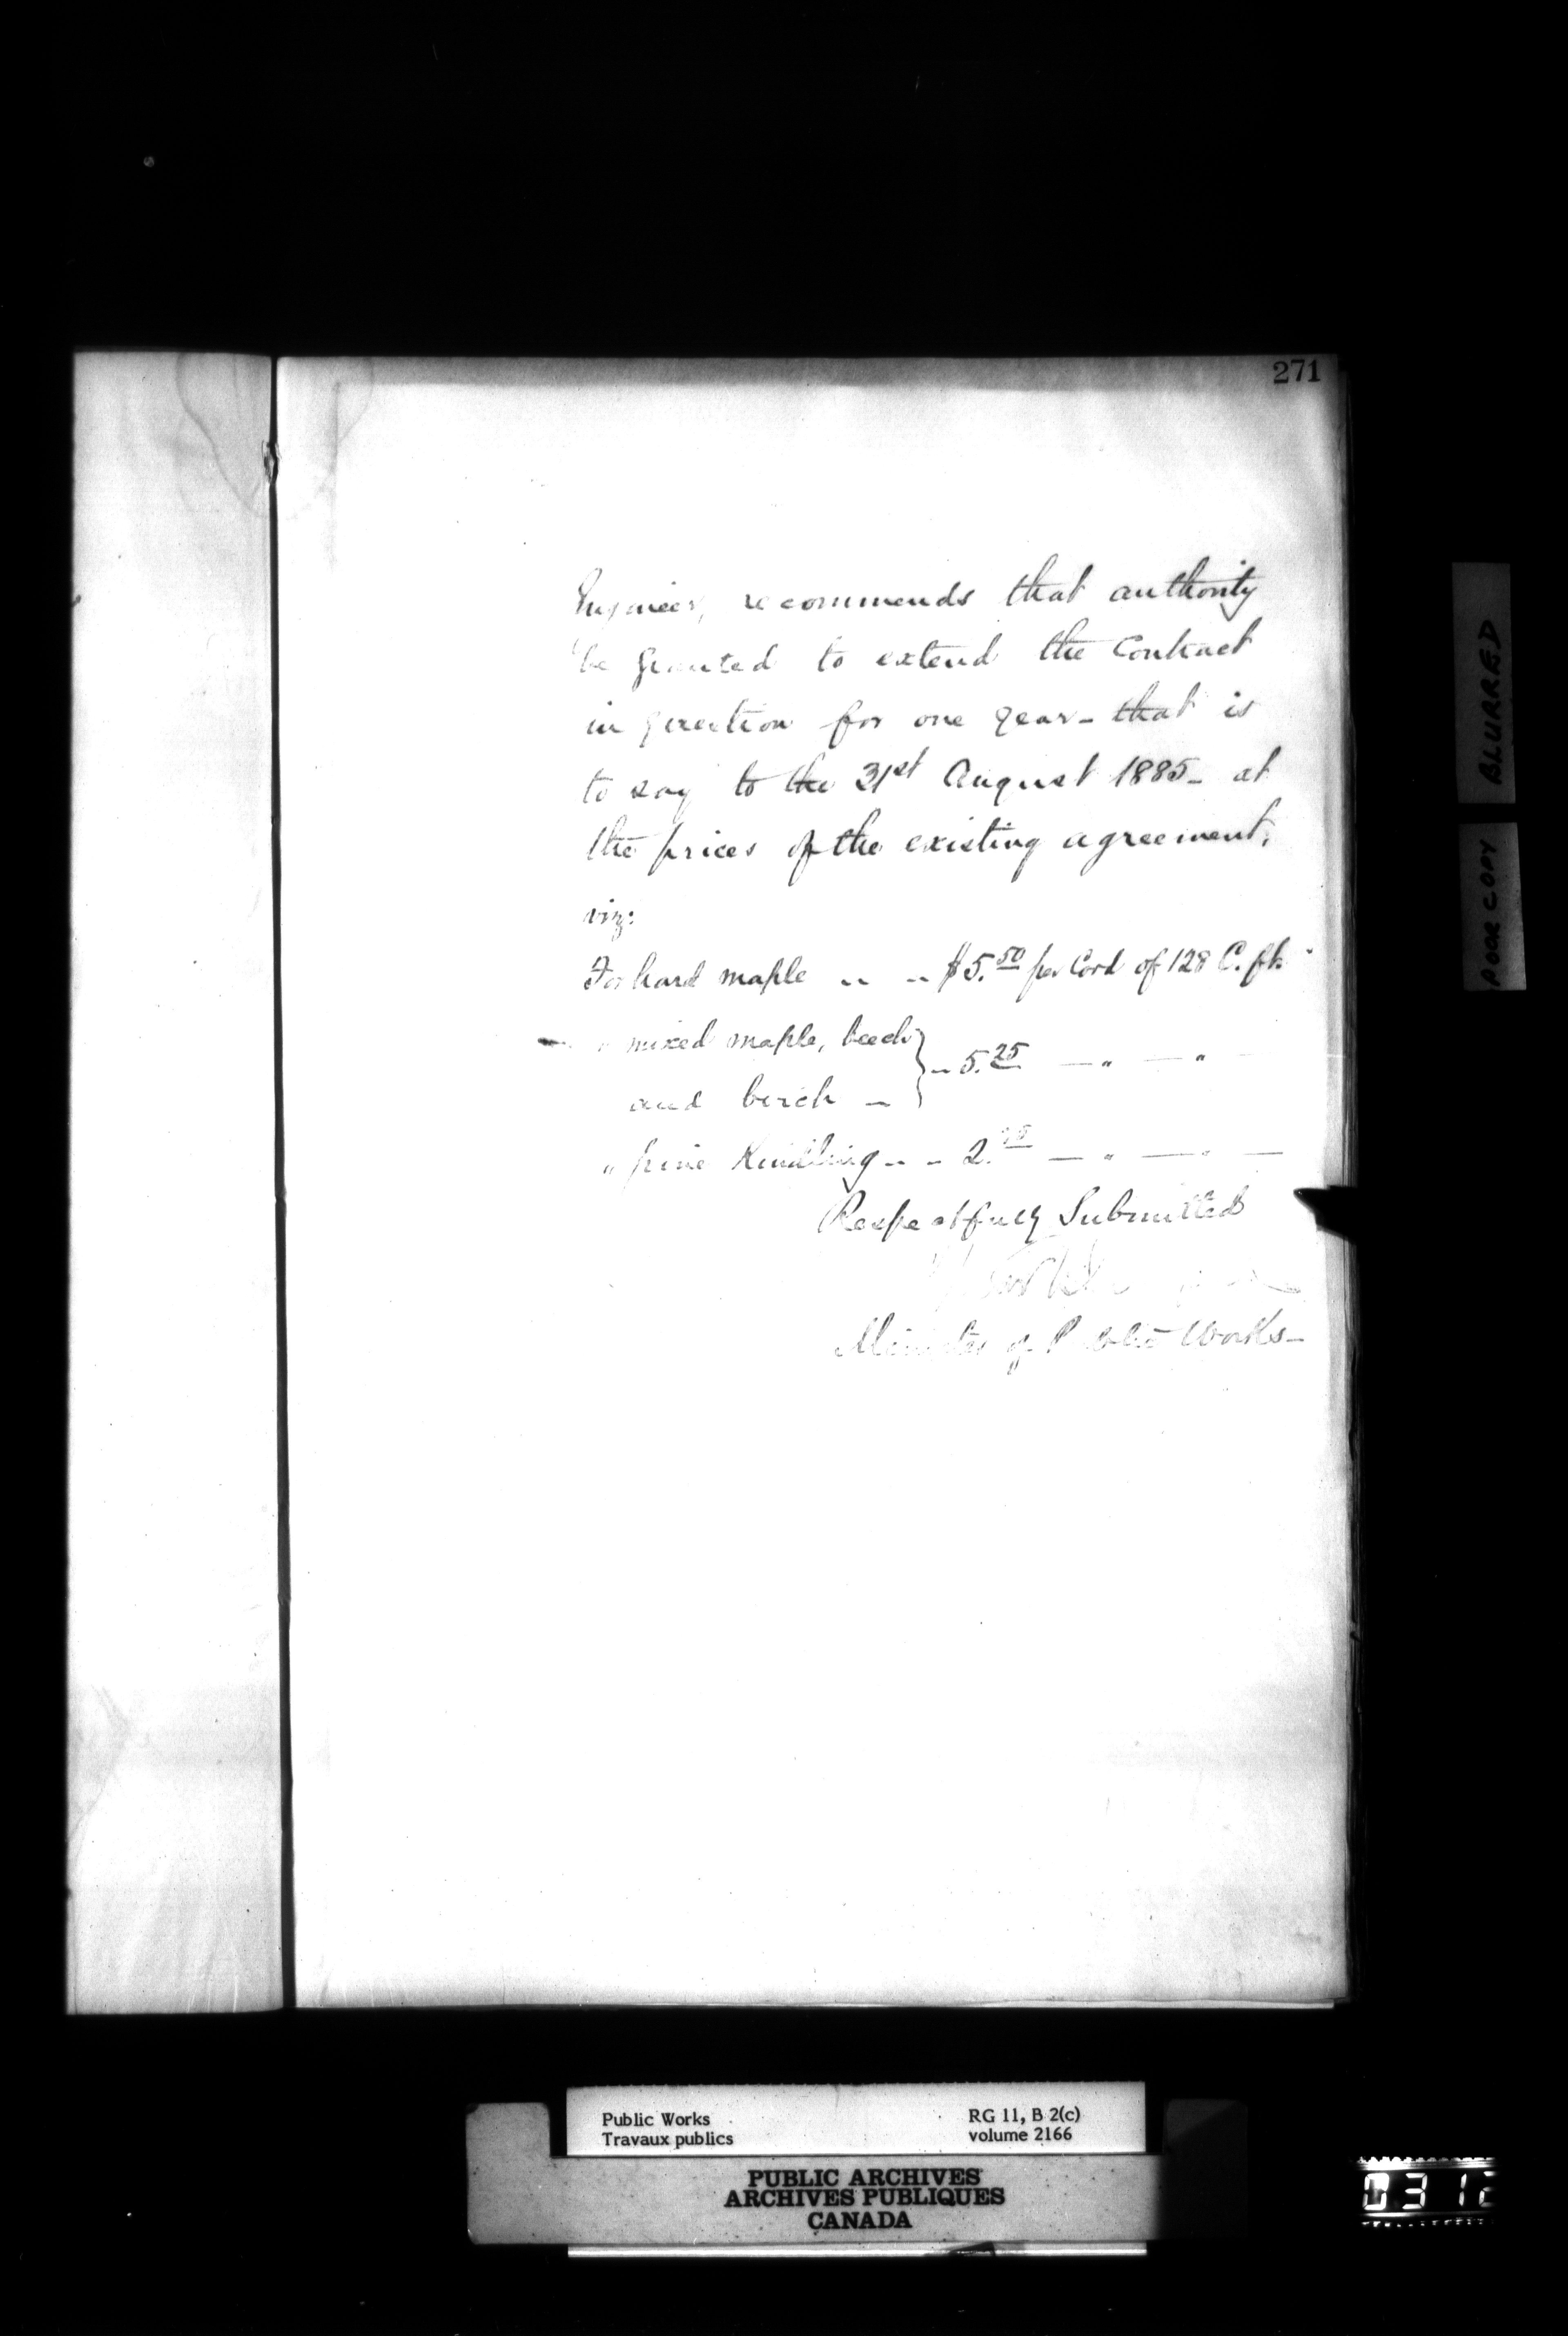 271
Engineer, recommends that authority
be granted to extend the Contract
in question for one year - that is
to say to the 31st August 1885 - at
the prices of the existing agreement,
viz:
For hard maple .. .. $5.50 per Cord of 128 C. ft.
" mixed maple, beech } .. 5.25 — " — " —
and birch —
" pine Kindling - - 2. — " — " —
Respectfully Submitted
Minister of Public Works -
BLURRED
POOR COPY
Public Works
Travaux publics
RG 11, B 2(c)
volume 2166
PUBLIC ARCHIVES
ARCHIVES PUBLIQUES
CANADA
0312